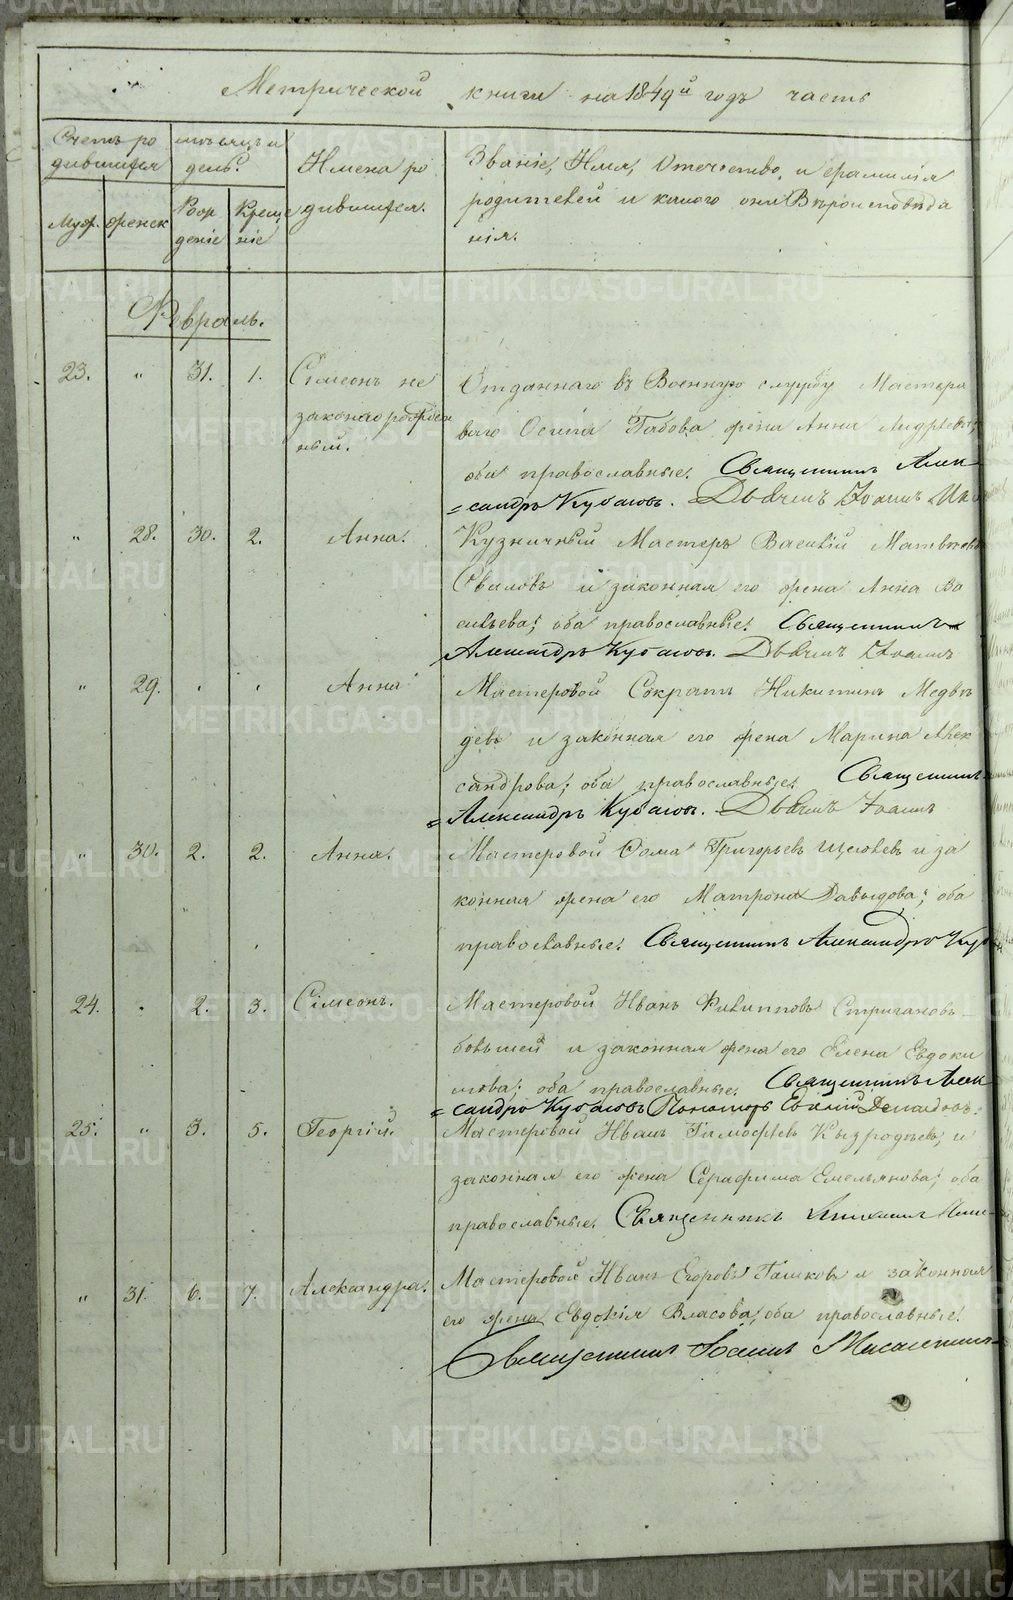 Метрической книги на 1849й годъ часть
Счетъ ро
дившихся
мѣсяцъ и
день
Имена ро
дившихся.
Званіе, Имя, Отечество, и фамилія
родителей и какого они Вѣроисповѣда
нія.
Муж. женск
Рож
деніе
Креще
ніе
Февраль.
23. " 31. 1. Сімеонъ не
законорожден
ный.
Отданнаго въ Военную службу Мастеро
ваго Осипа Бабова жена Анна
оба православные. Священникъ Алек
=сандръ Кубасовъ. Дьячекъ Іоаннъ
" 28. 30. 2. Анна.
Кузничный Мастеръ Василій Матвѣевъ
Оваловъ и законная его жена Анна Ва
сильева; оба православные. Священникъ
Александръ Кубасовъ. Дьячекъ Іоаннъ
" 29. " " Анна
Мастеровой Сократъ Никитинъ Медвѣ
девъ и законная его жена Марина Алек
сандрова; оба православные. Священникъ
=Александръ Кубасовъ. Дьячекъ Іоаннъ
" 30. 2. 2. Анна.
Мастеровой Ѳома Григорьевъ и за
конная жена его Матрона Давыдова; оба
православные. Священникъ Александръ
24. " 2. 3. Сімеонъ.
Мастеровой Иванъ Филипповъ Стригановъ
большей и законная жена его Елена Евдоки
мова; оба православные. Священникъ Алек
=сандръ Кубасовъ Пономарь
25. " 3. 5. Георгій.
Мастеровой Иванъ Тимофѣевъ и
законная его жена Серафима Емельянова; оба
православные. Священникъ
" 31. 6. 7. Александра.
Мастеровой Иванъ Егоровъ Пашковъ и законная
его жена Евдокія Власова, оба православные.
Священникъ Іоаннъ
METRIKI.GASO-URAL.RU